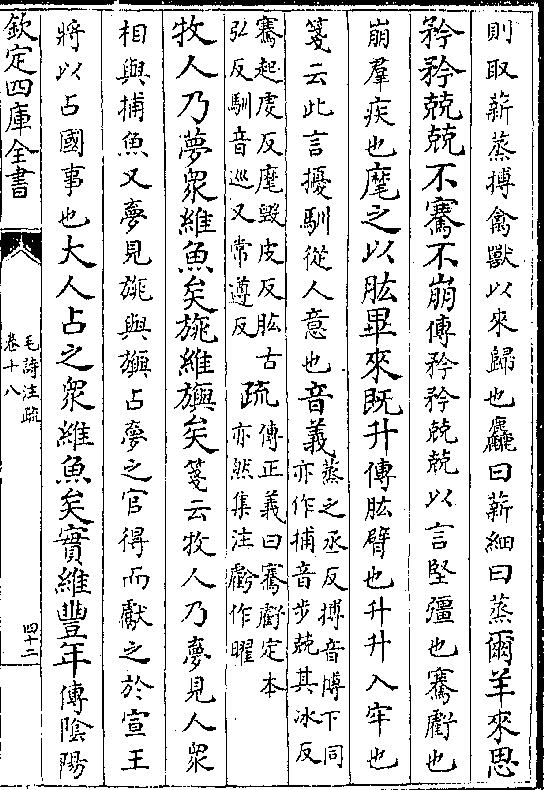 則取薪蒸搏禽獸以來歸也麤曰薪細曰蒸爾羊來思
矜矜兢兢不騫不崩傳矜矜兢兢以言堅彊也騫虧也
崩羣疾也麾之以肱畢來既升傳肱臂也升升入牢也
箋云此言擾馴從人意也音義蒸之丞反搏音博下同
亦作捕音步兢其冰反
騫起虔反麾毀皮反肱古
弘反馴音巡又常遵反疏傳正義曰騫虧定本
亦然集注虧作曜
牧人乃夢衆維魚矣旐維旟矣箋云牧人乃夢見人衆
相與捕魚又夢見旐與旟占夢之官得而獻之於宣王
將以占國事也大人占之衆維魚矣實維豐年傳陰陽
欽定四庫全書
毛詩注疏
卷十八
四十二